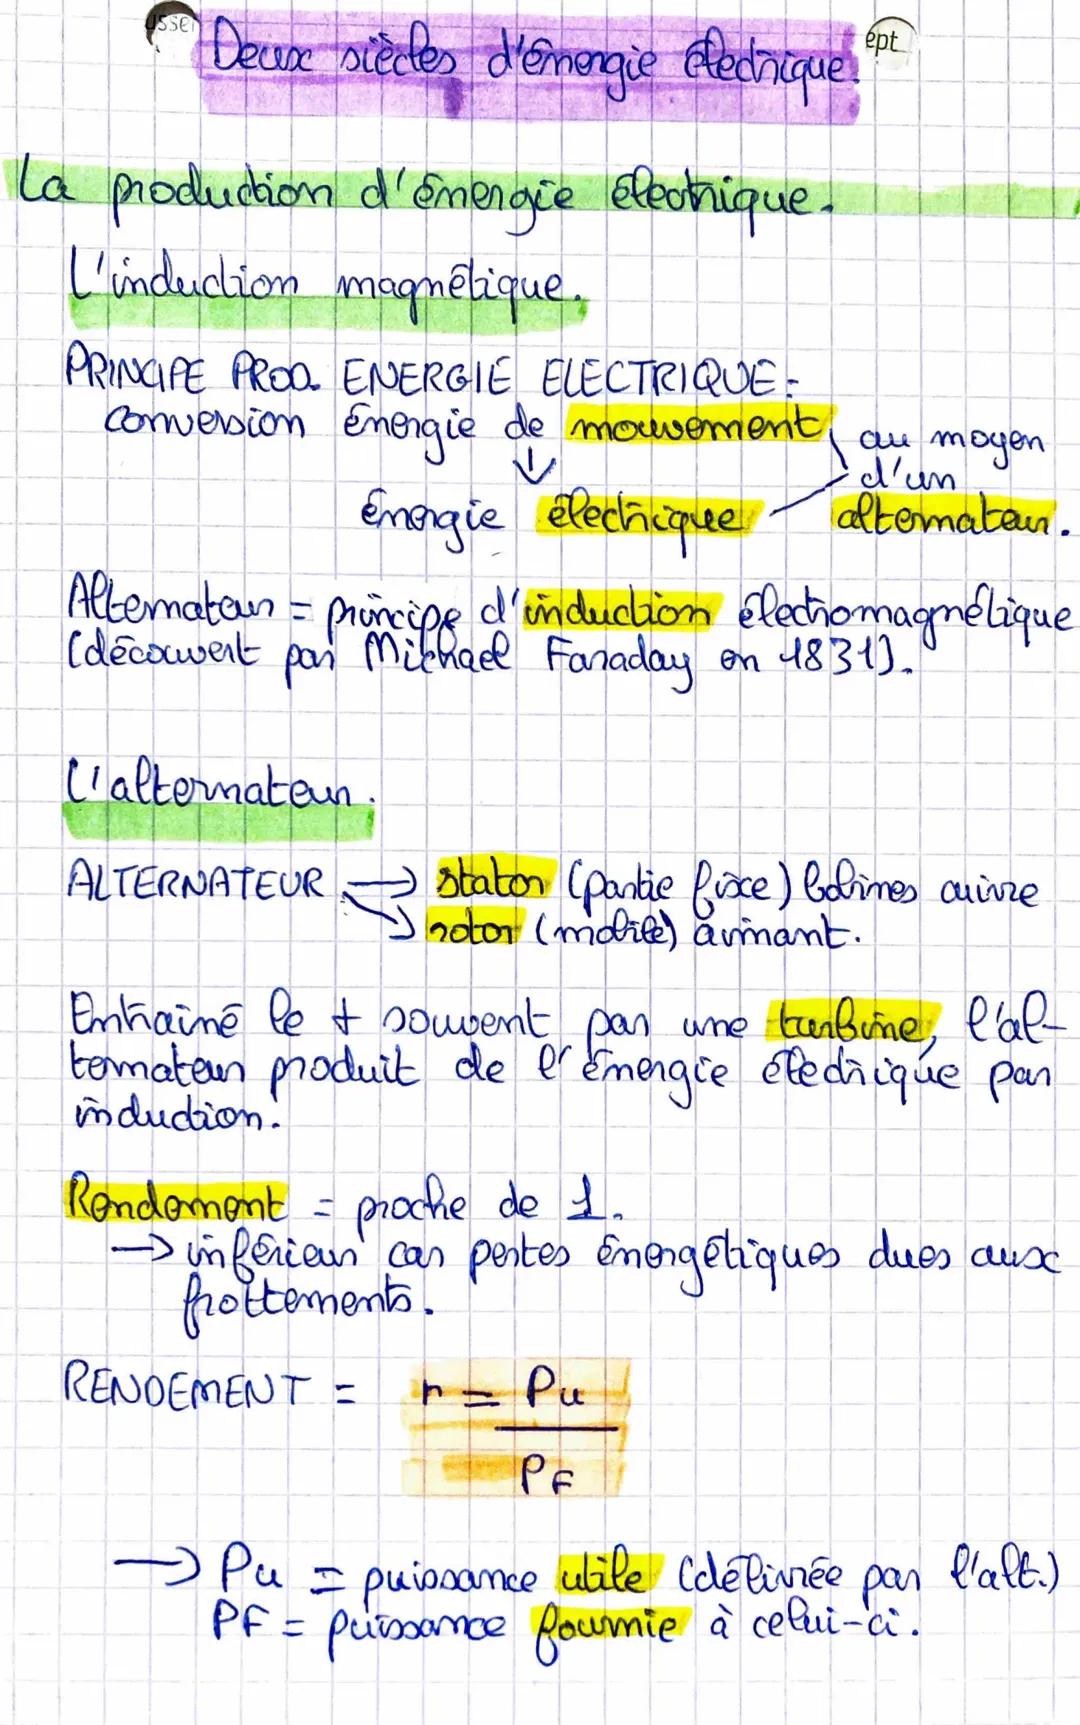 Deux siècles d'énergie électrique.
La production d'énergie électrique.
L'induction magnétique.
PRINCIPE PROD. ENERGIE ELECTRIQUE :
conversion énergie de mouvement
↓
énergie électrique
au moyen
d'un
alternateur.
Alternateur = principe d'induction électromagnétique
(découvert par Michael Faraday en 1831).
L'alternateur.
ALTERNATEUR → stator (partie fixe) bobines cuivre
→ rotor (mobile) aimant.
Entraîné le + souvent par une turbine, l'al-
ternateur produit de l'énergie électrique par
induction.
Rendement = proche de 1.
→ inférieur car pertes énergétiques dues aux
frottements.
RENDEMENT = r = Pu
PF
→ Pu = puissance utile (délivrée par l'alt.)
PF = puissance fournie à celui-ci.